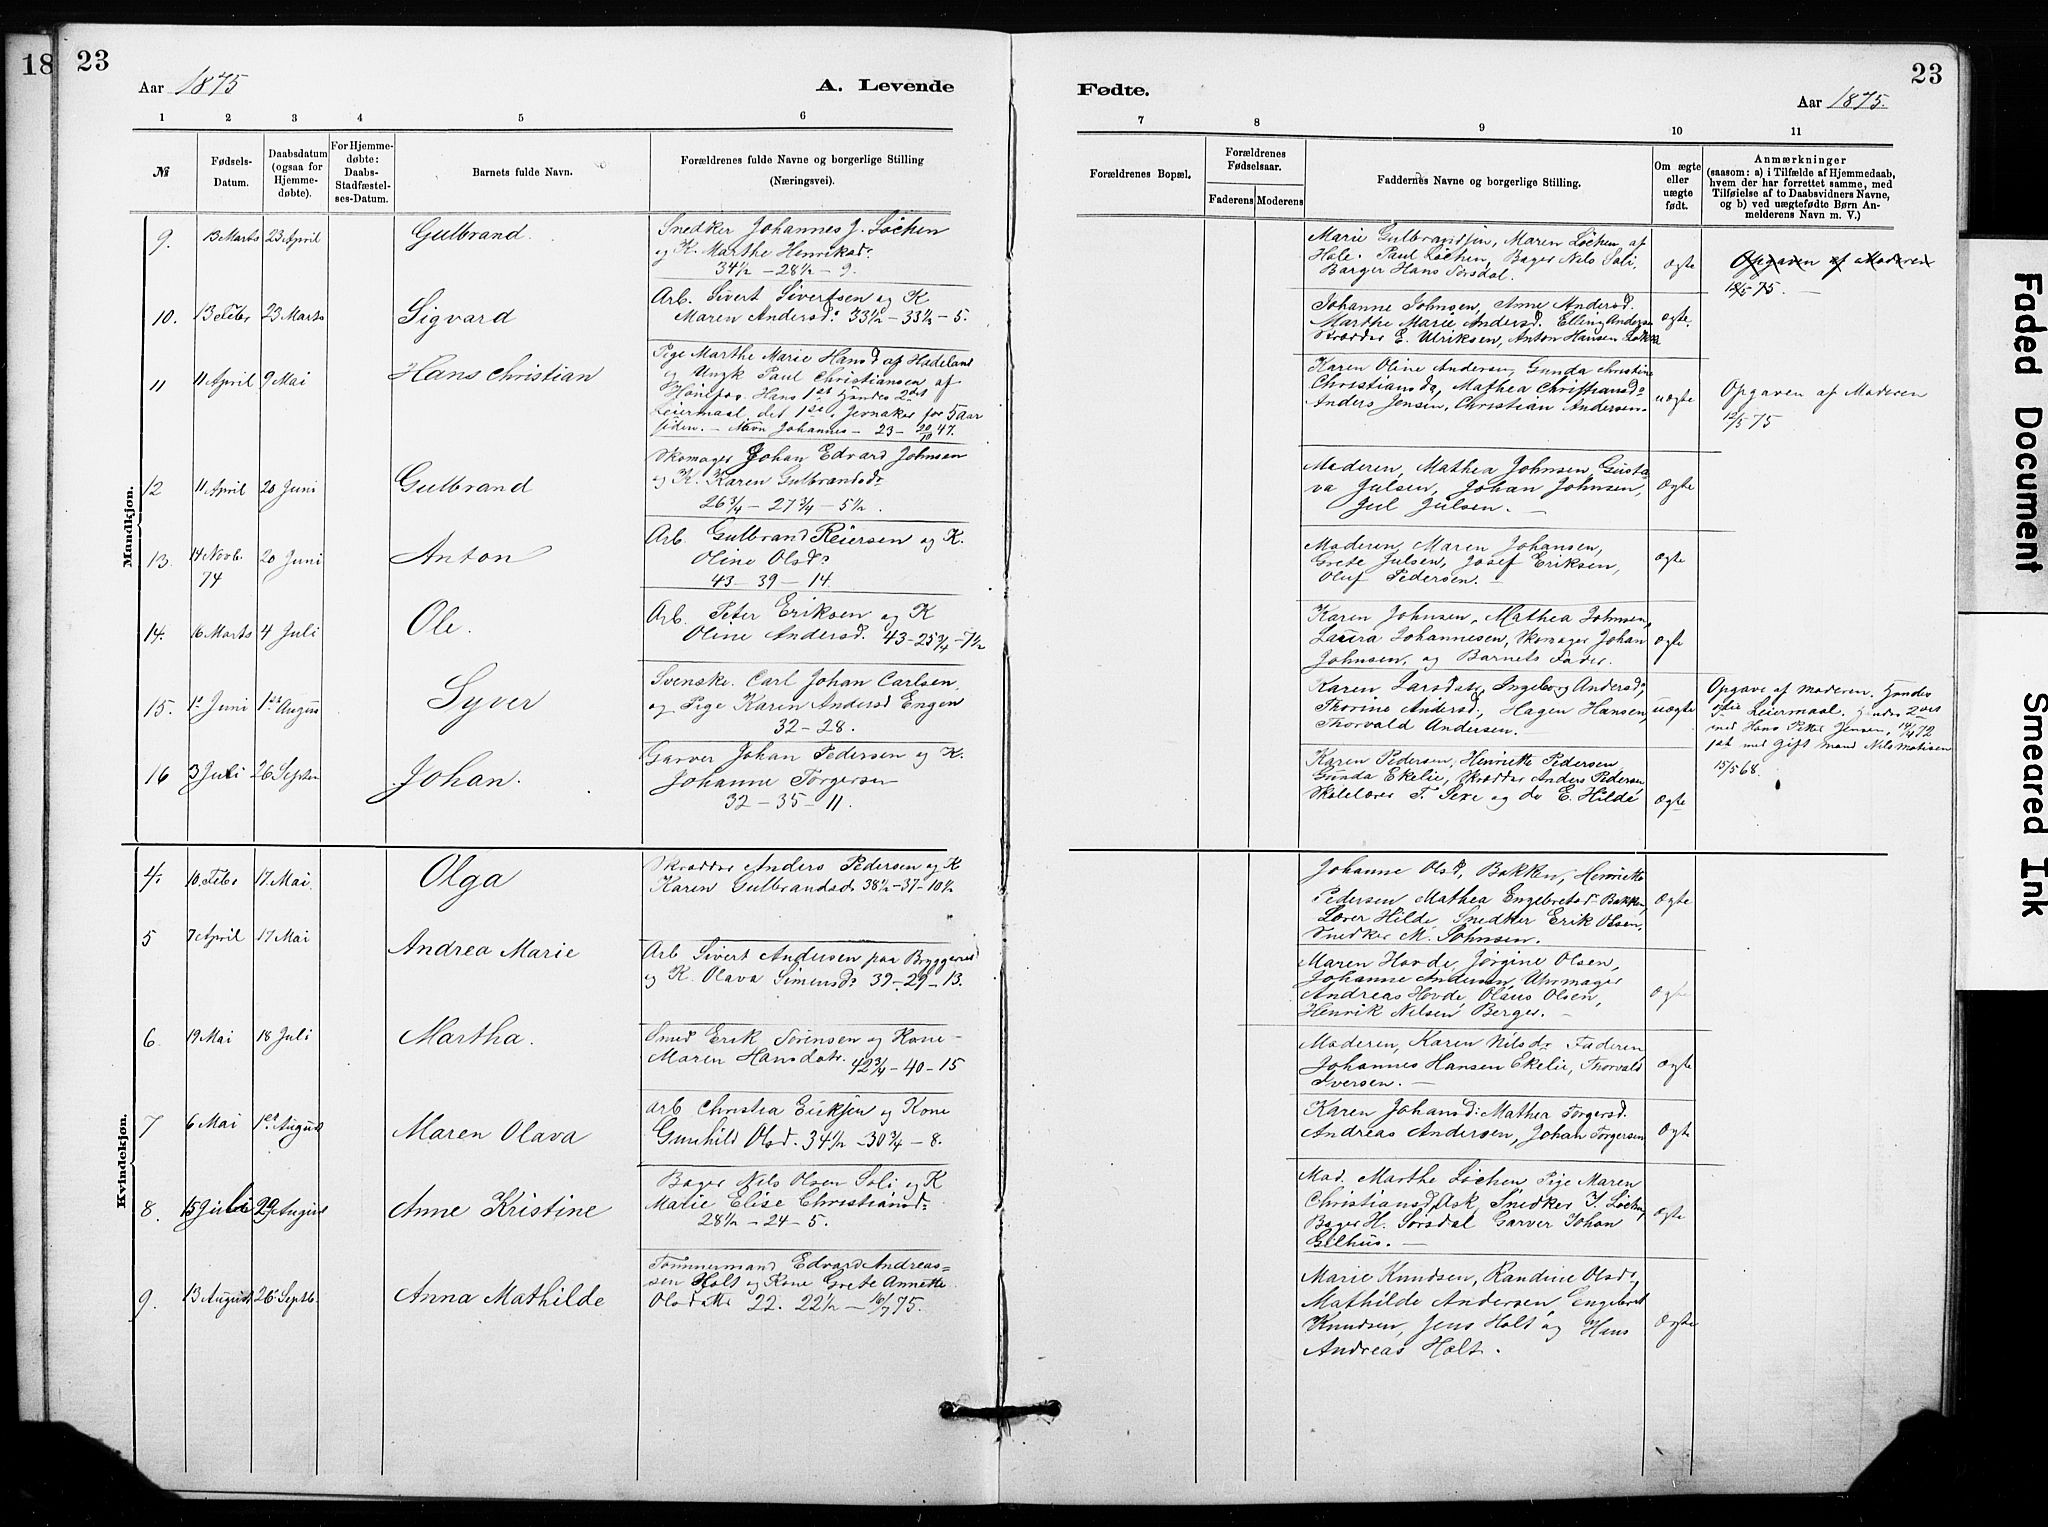 18
23
Aar 1875
A. Levende
1 2 3 4 5 6
№
Fødsels-
Datum.
Daabsdatum
(ogsaa for
Hjemme-
døbte).
For Hjemme-
døbte:
Daabs-
Stadfæstel-
ses-Datum.
Barnets fulde Navn.
Forældrenes fulde Navne og borgerlige Stilling
(Næringsvei).
Mandkjøn.
9. 13 Marts 23 April Gulbrand.
Snedker Johannes J. Løchen
og K. Marthe Henriksd:
34½ – 28½ – 9.
10. 13 Febr 23 Marts Sigvard
Arb. Sivert Sivertsen og K
Maren Andersd: 33½ – 33½ – 5.
11 11 April 9 Mai Hans Christian
Pige Marthe Marie Hansd af Hadeland
og Ungk Paul Christiansen af
Hønefos. Hans 1ste Hendes 2det
Leiermaal, det 1ste i Jevnaker for 5 aar
siden. – Navn Johannes – 23 – 20/10 47.
12 11 April 20 Juni Gulbrand
Skomager Johan Edvard Johnsen
og K. Karen Gulbrandsd:
26¾ – 27¾ – 5½.
13. 14 Novb. 74 20 Juni Anton
Arb. Gulbrand Reiersen og K.
Oline Olsd:
43 – 39 – 14.
14. 16 Marts 4 Juli Ole.
Arb. Peter Eriksen og K
Oline Andersd. 43 – 25¾ – 7½
15. 1st Juni 1st August Syver
Svenske. Carl Johan Carlsen
og Pige Karen Andersd Engen
32 – 28.
16 3 Juli 26 Septen Johan.
Garver Johan Pedersen og K.
Johanne Torgersen
32 – 35 – 11.
Kvindekjøn.
4. 10. Febr 17 Mai. Olga
Skrædder Anders Pedersen og K
Karen Gulbrandsd: 38½ – 37 – 10½
5 7 April 17 Mai Andrea Marie
Arb Sivert Andersen paa Bryggeriet
og K. Olava Simensd: 39 – 29 – 13.
6. 19 Mai 18 Juli Martha.
Smed Erik Sørensen og Kone
Maren Hansdatr. 42¾ – 40 – 15
7 6 Mai 1st August Maren Olava
Arb Christia Eriksen og Kone
Gunhild Olsd. 34½ – 30¾ – 8.
8. 15 Juli 29 August Anne Kristine
Bager Nils Olsen Soli og K
Marie Elise Christiansd:
28½ – 24 – 5.
9. 13 August 26 Septb. Anna Mathilde
Tømmermand Edvard Andreas=
sen Holt og Kone Grete Annette
Olsdatter 22. 22½ – 16/7 75.
Fødte.
23
Aar 1875.
7 8 9 10 11
Forældrenes Bopæl.
Forældrenes
Fødselsaar.
Faderens Moderens
Faddernes Navne og borgerlige Stilling.
Om ægte
eller
uægte
født.
Anmærkninger
(saasom: a) i Tilfælde af Hjemmedaab,
hvem der har forrettet samme, med
Tilføielse af to Daabsvidners Navne,
og b) ved uægtefødte Børn An-
melderens Navn m. V.)
Marie Gulbrandsen, Maren Løchen af
Hole. Paul Løchen, Bager Nils Soli,
Bager Hans Sørsdal. Ægte Opgaven af Moderen
12/5 75. –
Johanne Johnsen, Anne Andersd.
Marthe Marie Andersd. Elling Andersen
Skrædder E. Ulriksen, Anton Hansen Ægte.
Karen Oline Andersen, Gunda Christine
Christiansd, Mathea Christiansd:
Anders Jensen, Christian Andersen. uægte Opgaven af Moderen
12/5 75
Moderen, Mathea Johnsen, Gusta-
va Julsen, Johan Johnsen,
Jul Julsen. – Ægte
Moderen, Maren Johansen,
Grete Julsen, Josef Eriksen,
Oluf Pedersen. – Ægte
Karen Johnsen, Mathea Johnsen,
Laura Johannesen, Skomager Johan
Johnsen, og Barnets Fader. Ægte
Karen Larsdatr, Ingeborg Andersd,
Thorine Andersd, Hagen Hansen,
Thorvald Andersen. – uægte
Opgave af Moderen. Hendes
Leiermaal. Hendes 2det
med Hans Petter Jensen, 14/4 72
1ste med gift mand Nils Matisen
15/5 68.
Karen Pedersen, Henriette Pedersen
Gunda Ekelie, Skrædder Anders Pedersen
Skolelærer T. Sexe og do E. Hilde Ægte
Johanne Olsd, Bakken, Henriette
Pedersen Mathea Engebretsd Bakken,
Lærer Hilde, Snedker Erik Olsen,
Snedker M. Johnsen. Ægte
Maren Hovde, Jørgine Olsen,
Johanne Andersen, Uhrmager
Andreas Hovde, Olaus Olsen,
Henrik Nilsen Berger. – Ægte
Moderen, Karen Nilsd: Faderen
Johannes Hansen Ekelie, Thorvald
Iversen. – Ægte
Karen Johansd: Mathea Torgersd.
Andreas Andersen, Johan Torgersen Ægte
Mad. Marthe Løchen Pige Maren
Christiansd, Ask, Snedker J. Løchen,
Bager H. Sørsdal Garver Johan
Gilhus. – Ægte
Marie Knudsen, Randine Olsd:,
Mathilde Andersen, Engebret
Knudsen, Jens Holt og Hans
Andreas Holt. Ægte
Faded Document
Smeared Ink